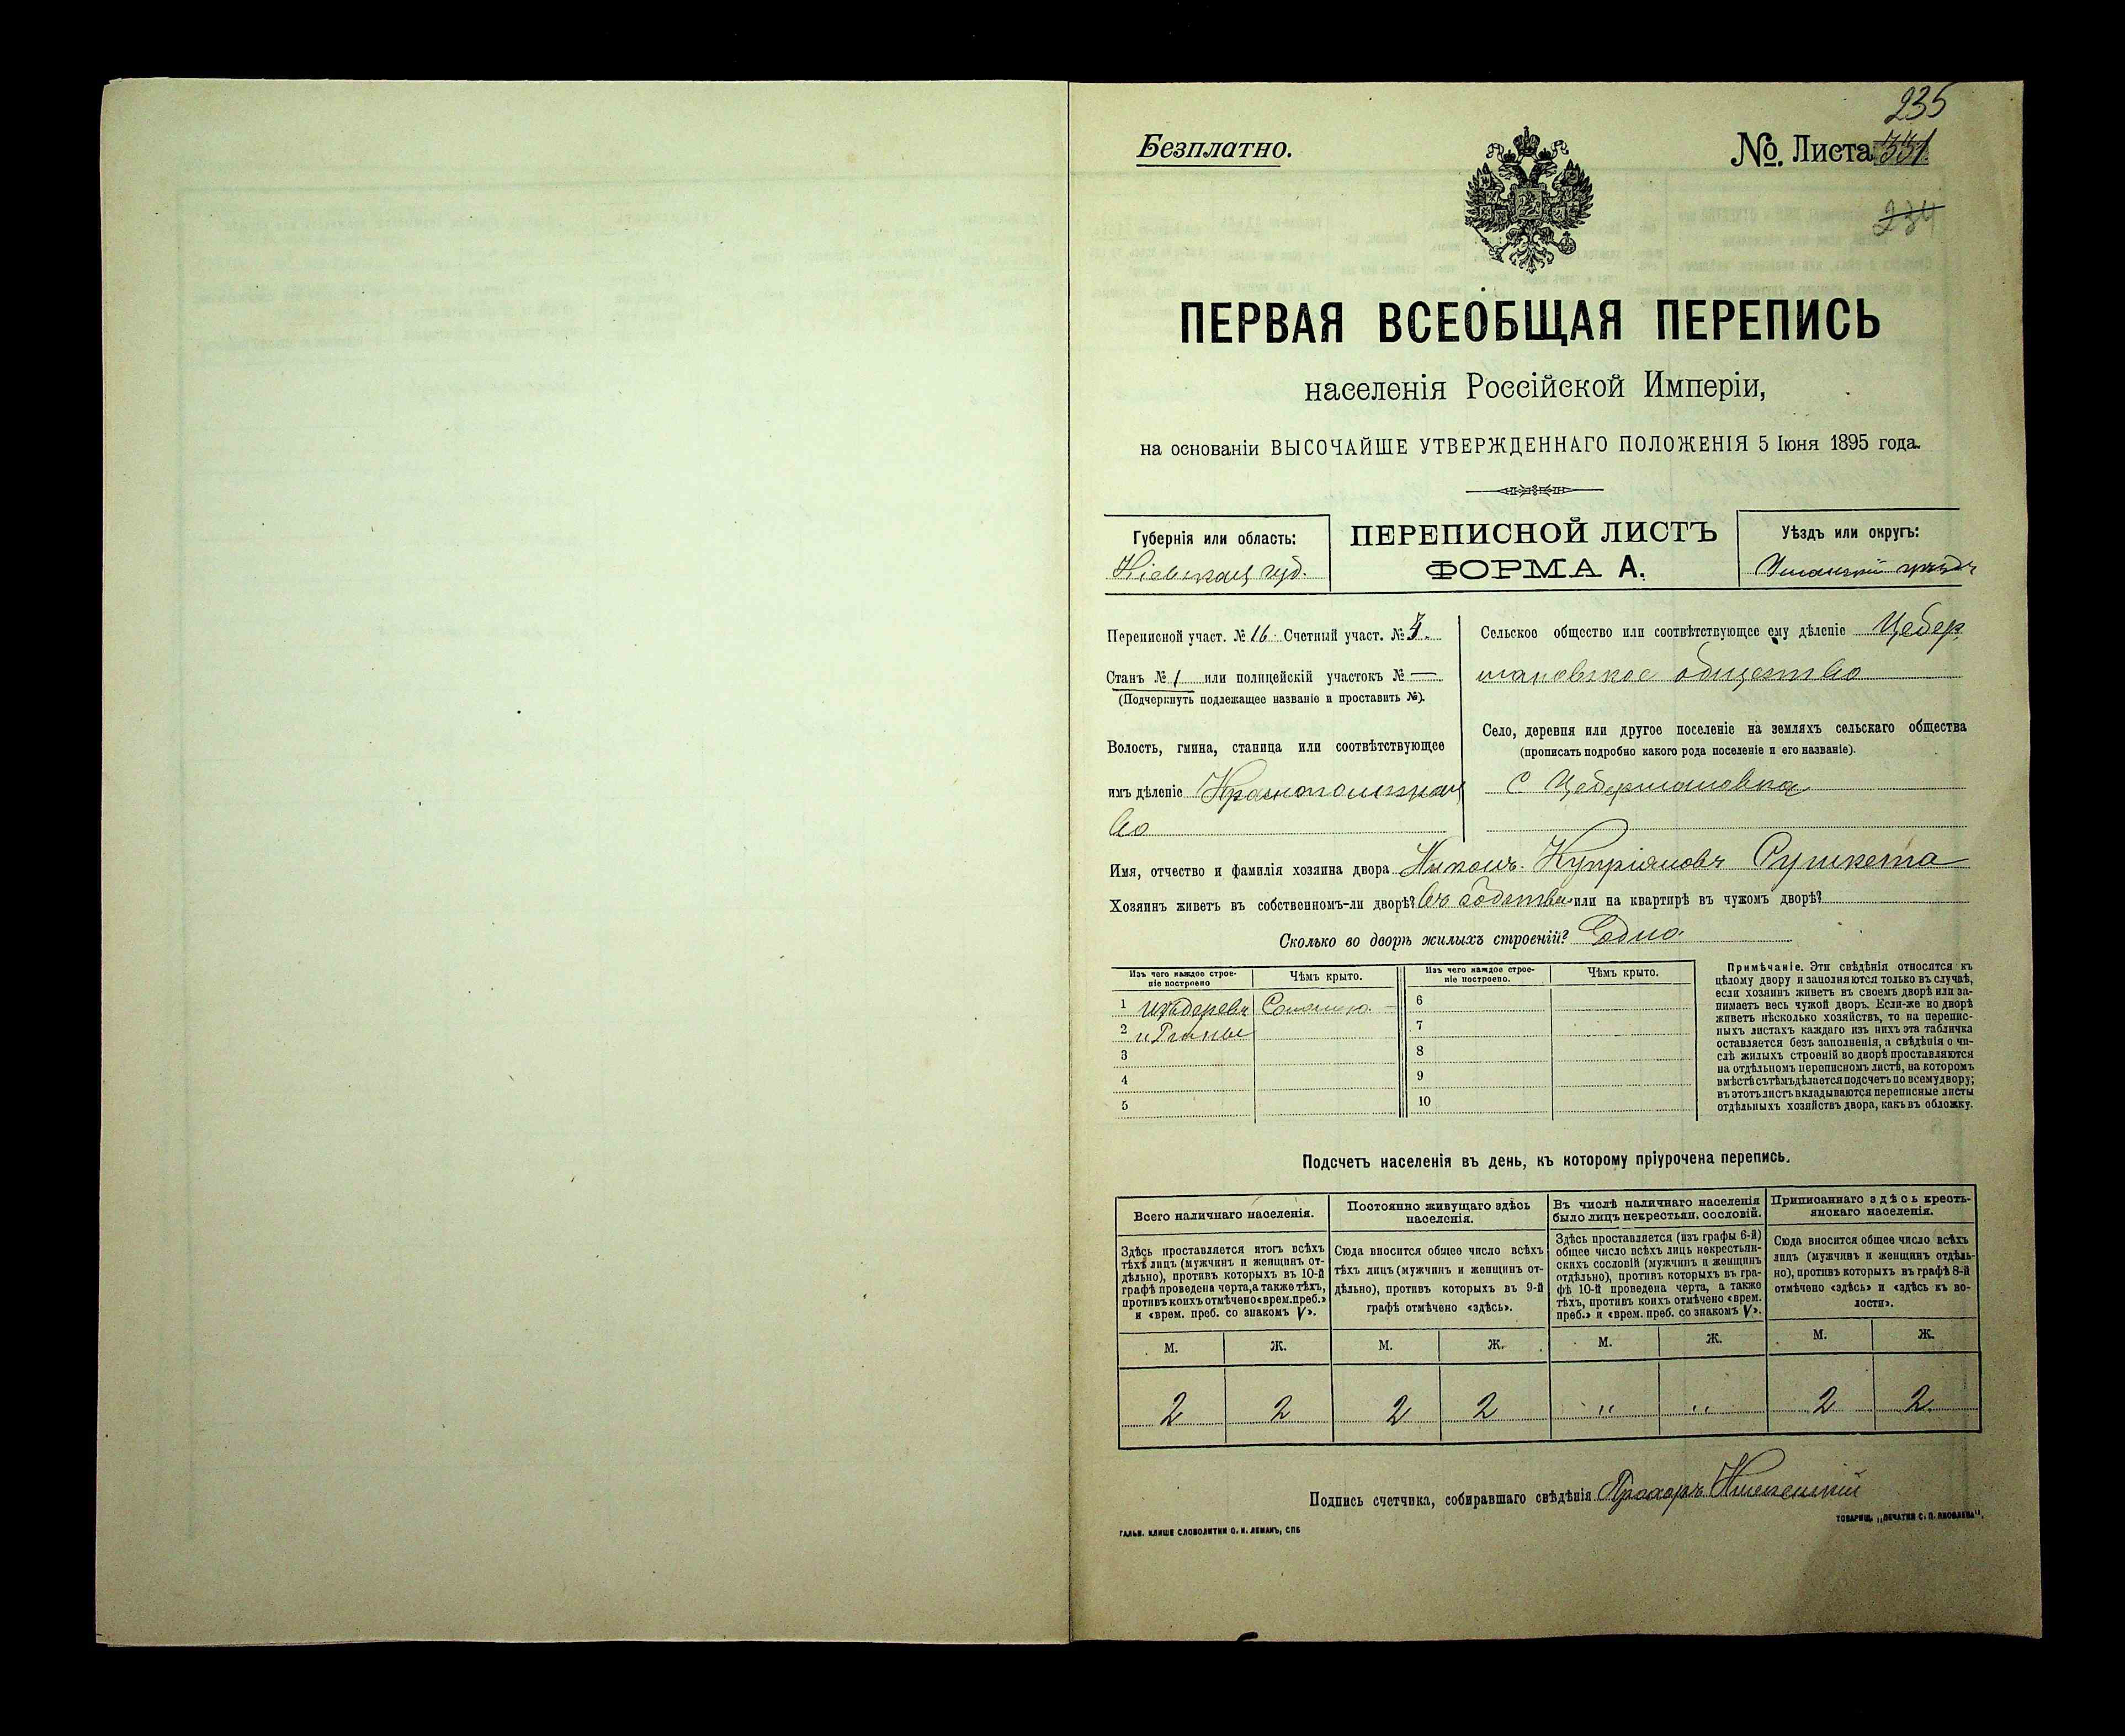 235
Безплатно.
№. Листа 331
234
ПЕРВАЯ ВСЕОБЩАЯ ПЕРЕПИСЬ
населенія Россійской Имперіи,
на основаніи ВЫСОЧАЙШЕ УТВЕРЖДЕННАГО ПОЛОЖЕНІЯ 5 Іюня 1895 года.
Губернія или область:
Кіевская губ.
ПЕРЕПИСНОЙ ЛИСТЪ
ФОРМА А.
Уѣздъ или округъ:
Уманскій уѣздъ
Переписной участ. № 16 Счетный участ. № 4.
Станъ № 1 или полицейскій участокъ № —
(Подчеркнуть подлежащее названіе и проставить №).
Волость, гмина, станица или соотвѣтствующее
имъ дѣленіе Краснопольская
во
Сельское общество или соотвѣтствующее ему дѣленіе Цебер
мановское общество
Село, деревня или другое поселеніе на земляхъ сельскаго общества
(прописать подробно какого рода поселеніе и его названіе).
С Цебермановка
Имя, отчество и фамилія хозяина двора Никонъ Купріяновъ Сушкета
Хозяинъ живетъ въ собственномъ-ли дворѣ? въ собствен или на квартирѣ въ чужомъ дворѣ?
Сколько во дворѣ жилыхъ строеній? Едно.
Изъ чего каждое строе-
ніе построено
Чѣмъ крыто.
Изъ чего каждое строе-
ніе построено.
Чѣмъ крыто.
1 изъ дерева Соломою 6
2 и Глины 7
3 8
4 9
5 10
Примѣчаніе. Эти свѣдѣнія относятся къ
цѣлому двору и заполняются только въ случаѣ,
если хозяинъ живетъ въ своемъ дворѣ или за-
нимаетъ весь чужой дворъ. Если-же во дворѣ
живетъ нѣсколько хозяйствъ, то на перепис-
ныхъ листахъ каждаго изъ нихъ эта табличка
оставляется безъ заполненія, а свѣдѣнія о чи-
слѣ жилыхъ строеній во дворѣ проставляются
на отдѣльномъ переписномъ листѣ, на которомъ
вмѣстѣ съ тѣмъ дѣлается подсчетъ по всему двору;
въ этотъ листъ вкладываются переписные листы
отдѣльныхъ хозяйствъ двора, какъ въ обложку.
Подсчетъ населенія въ день, къ которому пріурочена перепись.
Всего наличнаго населенія.
Здѣсь проставляется итогъ всѣхъ
тѣхъ лицъ (мужчинъ и женщинъ от-
дѣльно), противъ которыхъ въ 10-й
графѣ проведена черта, а также тѣхъ,
противъ коихъ отмѣчено «врем. преб.»
и «врем. преб. со знакомъ V».
Постоянно живущаго здѣсь
населенія.
Сюда вносится общее число всѣхъ
тѣхъ лицъ (мужчинъ и женщинъ от-
дѣльно), противъ которыхъ въ 9-й
графѣ отмѣчено «здѣсь».
Въ числѣ наличнаго населенія
было лицъ некрестьян. сословій.
Здѣсь проставляется (изъ графы 6-й)
общее число всѣхъ лицъ некрестьян-
скихъ сословій (мужчинъ и женщинъ
отдѣльно), противъ которыхъ въ гра-
фѣ 10-й проведена черта, а также
тѣхъ, противъ коихъ отмѣчено «врем.
преб.» и «врем. преб. со знакомъ V».
Приписаннаго здѣсь кресть-
янскаго населенія.
Сюда вносится общее число всѣхъ
лицъ (мужчинъ и женщинъ отдѣль-
но), противъ которыхъ въ графѣ 8-й
отмѣчено «здѣсь» и «здѣсь къ во-
лости».
М. Ж. М. Ж. М. Ж. М. Ж.
2 2 2 2 " " 2 2
Подпись счетчика, собиравшаго свѣдѣнія Прохоръ
ГАЛЬВ. КЛИШЕ СЛОВОЛИТНИ О. И. ЛЕМАНЪ, СПБ
ТОВАРИЩ. „ПЕЧАТНЯ С. П. ЯКОВЛЕВА".